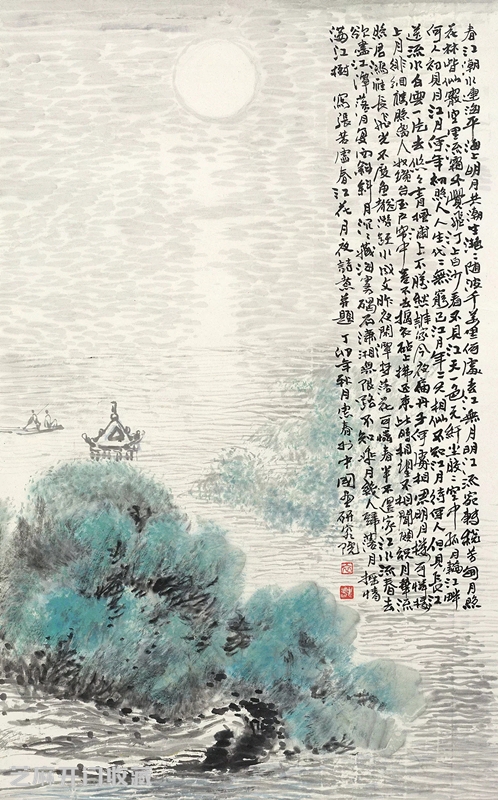 春江潮水連海平海上明月共潮生灧灧隨波千萬里何處春江無月明江流宛轉繞芳甸月照
花林皆似霰空里流霜不覺飛汀上白沙看不見江天一色无纤尘皎皎空中孤月輪江畔
何人初見月江月何年初照人人生代代無窮已江月年年只相似不知江月待何人但見長江
送流水白雲一片去悠悠青楓浦上不勝愁誰家今夜扁舟子何處相思明月樓可憐樓
上月徘徊應照離人妝鏡台玉戶簾中卷不去搗衣砧上拂还來此時相望不相聞願逐月華流
照君鴻雁長飛光不度魚龍潛躍水成文昨夜閑潭夢落花可憐春半不還家江水流春去
欲盡江潭落月復西斜斜月沉沉藏海霧碣石瀟湘無限路不知乘月幾人歸落月搖情
滿江樹 寫張若虛春江花月夜詩意并題 丁卯年秋月 春於中國畫研究院
芝麻开门收藏